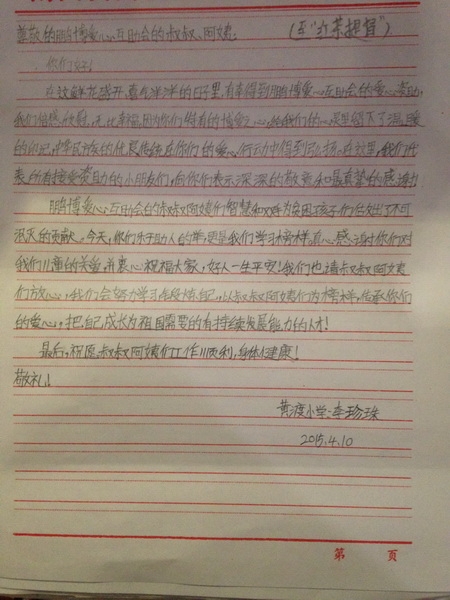 尊敬的鹏博爱心互助会的叔叔、阿姨:
(至“红菜提督”)
你们好!
在这鲜花盛开,喜气洋洋的日子里,有幸得到鹏博爱心互助会的爱心资助,
我们倍感欣慰,无比幸福,因为你们特有的博爱之心,给我们的心灵里留下了温暖
的印记,中华民族的优良传统在你们的爱心行动中得到弘扬,在这里,我们代
表所有接受资助的小朋友们,向你们表示深深的敬意和最真挚的感谢!
鹏博爱心互助会的叔叔阿姨们智慧和双手为贫困孩子们付出了不可
泯灭的贡献,今天,你们乐于助人的,更是我们学习榜样,真心感谢你们对
我们儿童的关爱,并衷心祝福大家,好人一生平安!我们也请叔叔阿姨
们放心,我们会努力学习,锻炼自己,以叔叔阿姨们为榜样,传承你们
的爱心,把自己成长为祖国需要的有持续发展能力的人才!
最后,祝愿叔叔阿姨们工作顺利,身体健康!
敬礼!
黄渡小学:李珍珠
2015.4.10
第 页